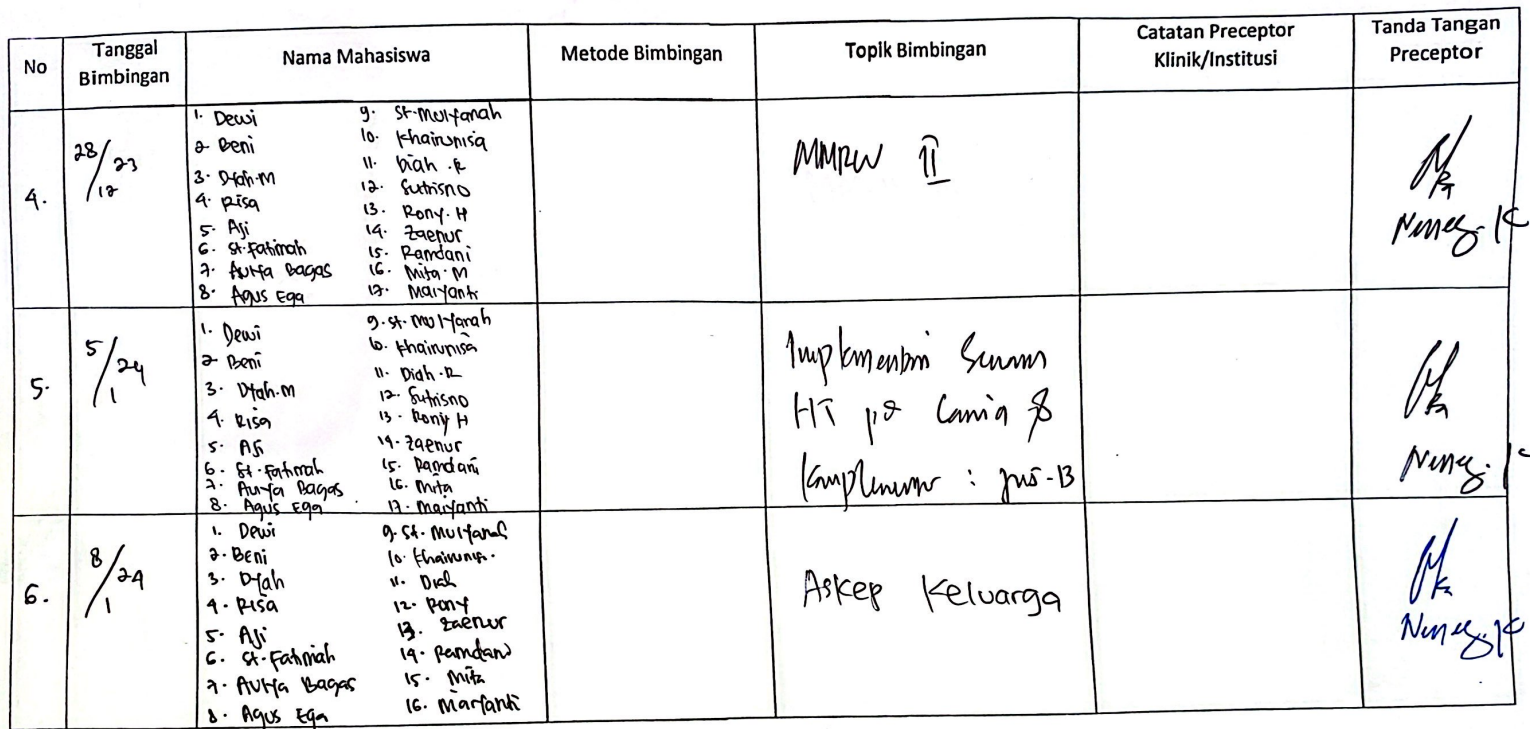 No
Tanggal
Bimbingan
Nama Mahasiswa
Metode Bimbingan
Topik Bimbingan
Catatan Preceptor
Klinik/Institusi
Tanda Tangan
Preceptor
4.
28/12 23
1. Dewi
2 Beni
3. Dyah.M
4. Risa
5. Aji
6. St.Fatimah
7. Aurya Bagas
8. Agus Ega
9. St.Mulyanah
10. Khairunisa
11. Diah .R
12. Sutrisno
13. Rony.H
14. Zaenur
15. Ramdani
16. Mita.M
17. Maryanti
MMRW II
5.
5/1 24
1. Dewi
2 Beni
3. Dyah.M
4. Risa
5. Aji
6. St.Fatimah
7. Aurya Bagas
8. Agus Ega
9.St.Mulyanah
10. Khairunisa
11. Diah.R
12. Sutrisno
13. Rony H
14. Zaenur
15. Ramdani
16. Mita
17. Maryanti
HT
6.
8/1 24
1. Dewi
2. Beni
3. Dyah
4. Risa
5. Aji
6. St.Fatimah
7. Aurya Bagas
8. Agus Ega
9. St. Mulyanah
10. Khairunis.
11. Diah
12. Rony
13. Zaenur
14. Ramdani
15. Mita
16. Maryanti
Askep Keluarga